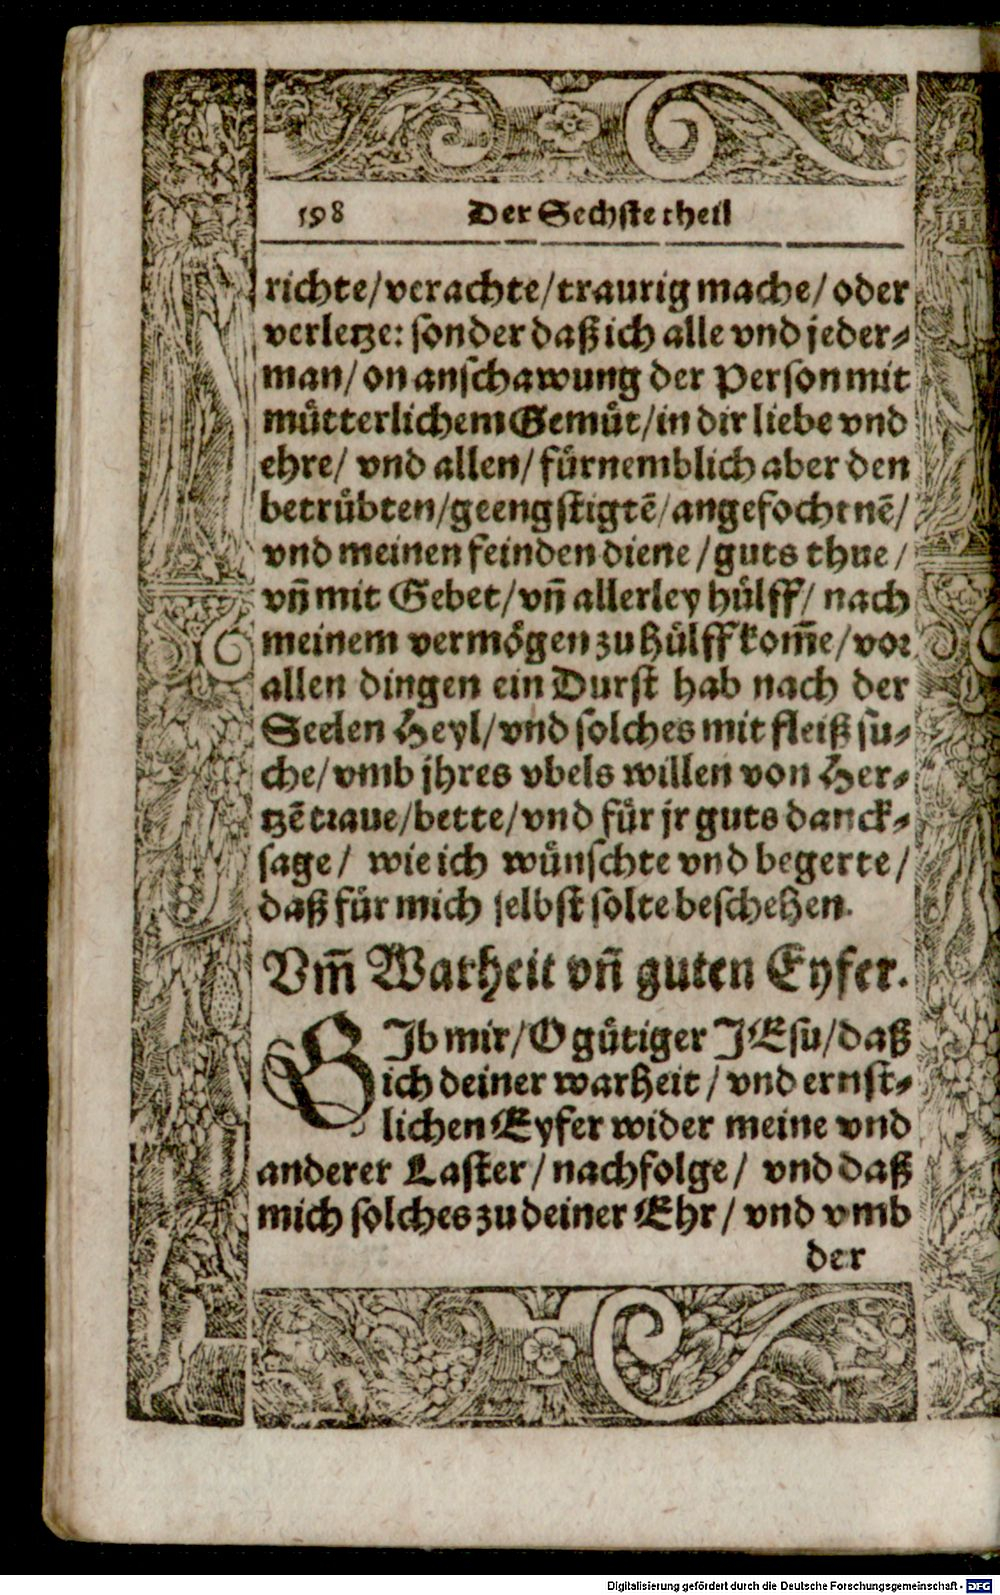 598 Der Sechste theil
richte/verachte/traurig mache/ oder
verletze: sonder daß ich alle vnd jeder⸗
man/ on anschawung der Person mit
muͤtterlichem Gemuͤt/in dir liebe vnd
ehre/ vnd allen/ fuͤrnemblich aber den
betruͤbten/geengstigtē/angefochtnē/
vnd meinen feinden diene/guts thue/
vn̄ mit Gebet/vn̄ allerley huͤlff/ nach
meinem vermoͤgen zu huͤlff kom̄e/vor
allen dingen ein Durst hab nach der
Seelen Heyl/vnd solches mit fleiß suͤ⸗
che/vmb jhres vbels willen von Her⸗
tzē traue/bette/vnd fuͤr jr guts danck⸗
sage/ wie ich wuͤnschte vnd begerte/
daß fuͤr mich selbst solte beschehen.
Vm̄ Warheit vn̄ guten Eyfer.
GIb mir/O guͤtiger JEsu/daß
ich deiner warheit/ vnd ernst⸗
lichen Eyfer wider meine vnd
anderer Laster/nachfolge/ vnd daß
mich solches zu deiner Ehr/ vnd vmb
der
Digitalisierung gefördert durch die Deutsche Forschungsgemeinschaft - DFG